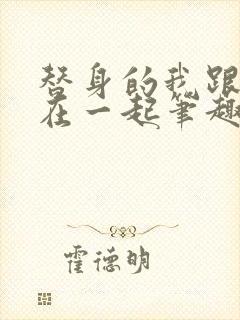 替身的我跟
在一起笔趣
霍德明